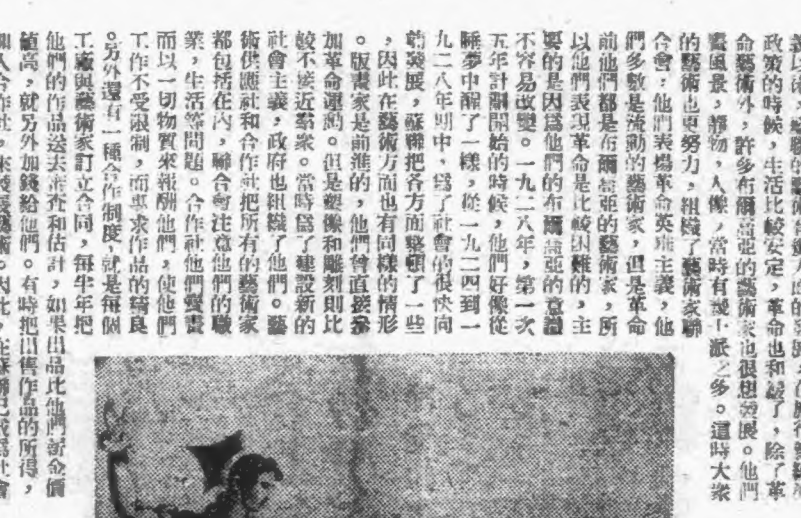 政策的時候，生活比較安定，革命也和緩了，除了革
命藝術外，許多布爾喬亞的藝術家也很想發展。他們
畫風景，靜物，人像，當時有幾十派之多。這時大衆
的藝術也更努力，組織了藝術家聯
合會，他們表揚革命英雄主義，他
們多數是流動的藝術家，但是革命
前他們都是布爾喬亞的藝術家，所
以他們表現革命是比較困難的，主
要的是因爲他們的布爾喬亞的意識
不容易改變。一九二八年，第一次
五年計劃開始的時候，他們好像從
睡夢中醒了一樣，從一九二四到一
九二八年期中，爲了社會的很快向
前發展，蘇聯把各方面整頓了一些
，因此在藝術方面也有同樣的情形
。版畫家是前進的，他們曾直接參
加革命運動。但是塑像和雕刻則比
較不接近羣衆。當時爲了建設新的
社會主義，政府也組織了他們。藝
術供應社和合作社把所有的藝術家
都包括在內，聯合會注意他們的職
業，生活等問題。合作社他們賣畫
而以一切物質來報酬他們，使他們
工作不受限制，而要求作品的精良
。另外還有一種合作制度，就是每個
工廠與藝術家訂立合同，每半年把
他們的作品送去審查和估計，如果出品比他們薪金價
值高，就另外加錢給他們。有時把出售作品的所得，